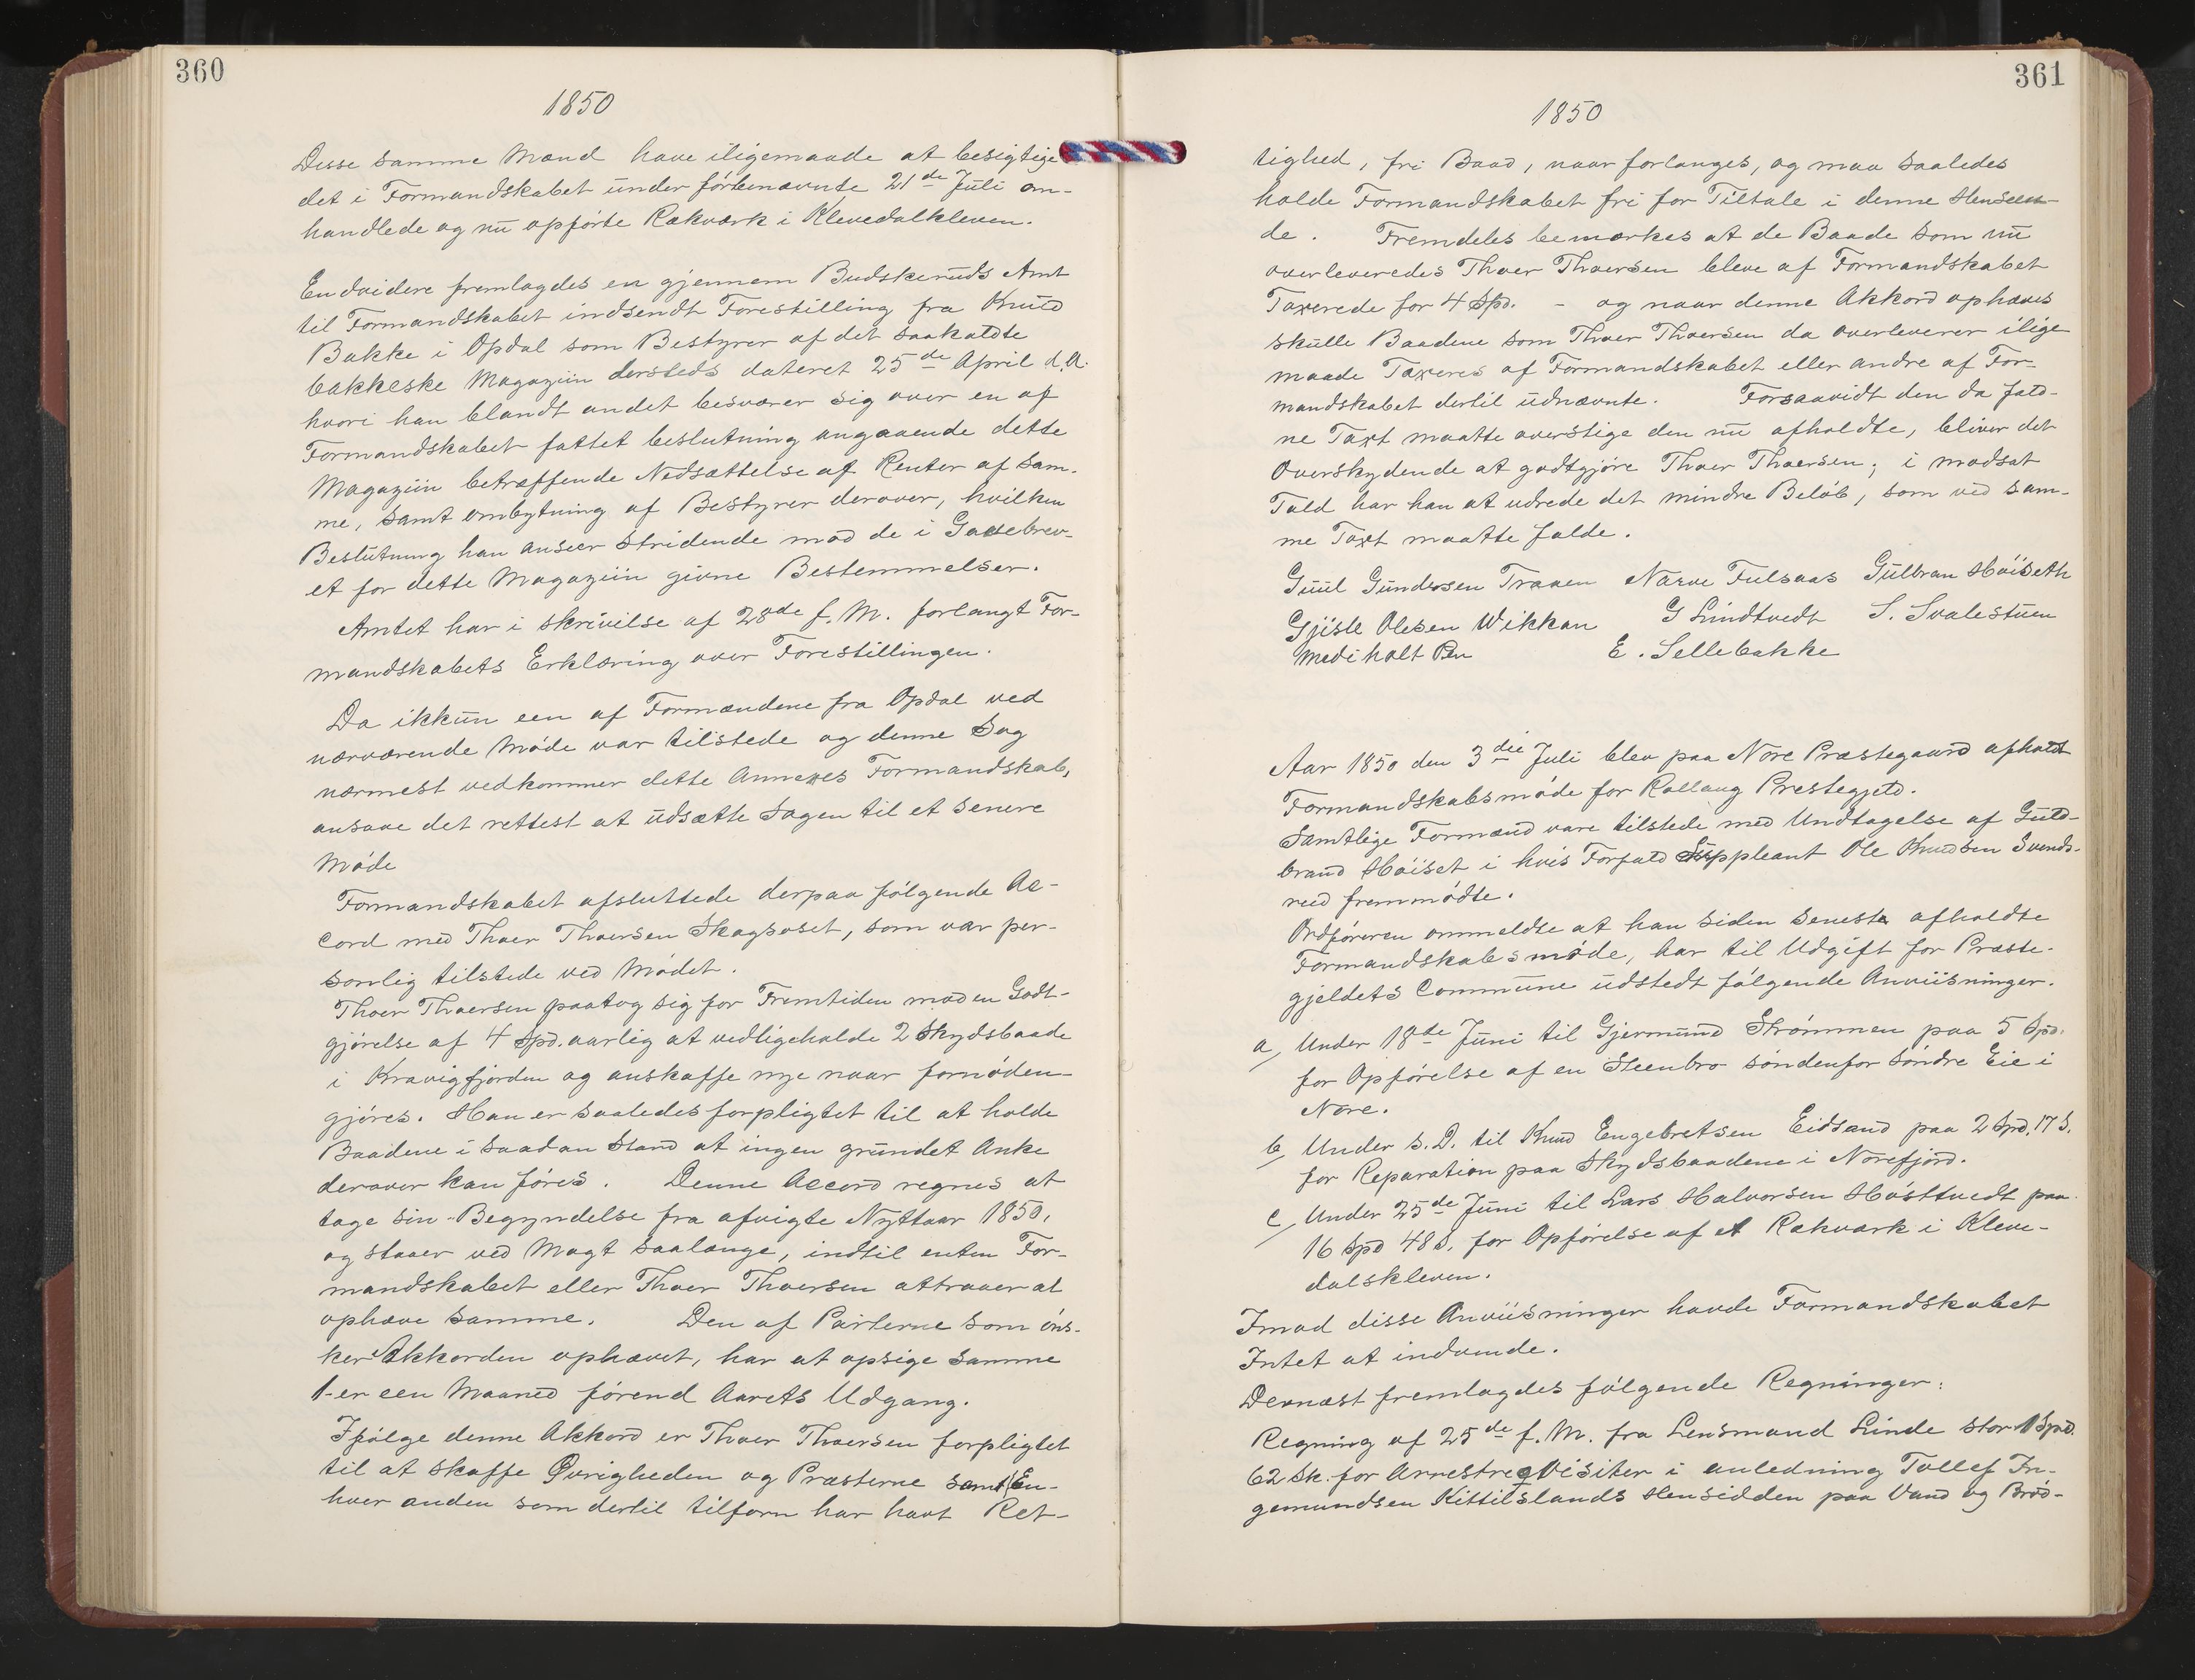 360
1850
Desse samme Mænd have iligemaade at besigtige
det i Formandskabet under förbenævnte 21de Juli om-
handlede og nu opförte Rækværk i Klevedalkleven.
Endvidere fremlagdes en gjennem Budskeruds Amt
til Formandskabet indsendt Forestilling fra Knud
Bakke i Opdal som Bestyrer af det saakaldte
bakkeske Magaziin dersteds dateret 25de April d.A.
hvori han blandt andet besværer sig over en af
Formandskabet fattet beslutning angaaende dette
Magaziin betræffende Nedsættelse af Renter af sam-
me, samt ombytning af Bestyrer derover, hvilken
Beslutning han anseer stridende mod de i Gavebrev-
et for dette Magaziin givne Bestemmelser.
Amtet har i skrivelse af 28de f. M. forlangt For-
mandskabets Erklæring over Forestillingen.
Da ikkun een af Formændene fra Opdal ved
nærværende Möde var tilstede og denne Sag
nærmest vedkommer dette Annexes Formandskab,
ansaae det rettest at udsætte Sagen til et senere
Möde
Formandskabet afsluttede derpaa fölgende Ac-
cord med Thoer Thoersen Skagsoset, som var per-
sonlig tilstede ved Mödet.
Thoer Thoersen paatog sig for Fremtiden mod en Godt-
gjörelse af 4 Spd. aarlig at vedligeholde 2 Skydsbaade
i Kravigfjorden og anskaffe nye naar fornöden-
gjöres. Han er saaledes forpligtet til at holde
Baadene i saadan Stand at ingen grundet Anke
derover kan föres. Denne Accord regnes at
tage sin Begyndelse fra afvigte Nyttaar 1850,
og staaer ved Magt saalænge, indtil enten For-
mandskabet eller Thoer Thoersen attraaer at
ophæve samme. Den af Parterne som öns-
ker Akkorden ophævet, har at opsige samme
1-er een Maaned förend Aarets Udgang.
Ifölge denne Akkord er Thoer Thoersen forpligtet
til at skaffe Øvrigheden og Præsterne samt En-
hver anden som dertil tilforn har havt Ret-
361
1850
tighed, fri Baad, naar forlanges, og maa saaledes
holde Formandskabet fri for Tiltale i denne Henseen-
de. Fremdeles bemærkes at de Baade som nu
overleveredes Thoer Thoersen bleve af Formandskabet
Taxerede for 4 Spd. - og naar denne Akkord ophæves
skulle Baadene som Thoer Thoersen da overleverer ilige
maade Taxeres af Formandskabet eller andre af For-
mandskabet dertil udnævnte. Forsaavidt den da fald-
ne Taxt maatte overstige den nu afholdte, bliver det
Overskydende at godtgjöre Thoer Thoersen; i modsat
Fald har han at udrede det mindre Belöb, som ved sam-
me Taxt maatte falde.
Guul Gundersen Traaen Narve Fulsaas Gulbran Höiseth
Gjisle Olesen Wikkan G Lindtvedt S. Svalestuen
Medi holt Pen E. Sellebakke
Aar 1850 den 3die Juli blev paa Nore Præstegaard afholdt
Formandskabsmöde for Rollaug Prestegjeld.
Samtlige Formænd vare tilstede med Undtagelse af Guld-
brand Höiset i hvis Forfald Suppleant Ole Knudsen Svends-
rud fremmödte.
Ordföreren ommeldte at han siden seneste afholdte
Formandskabsmöde, har til Udgift for Præste-
gjeldets Commune udstedt fölgende Anviisninger.
a, Under 18de Juni til Gjermund Strömmen paa 5 Spd.
for Opförelse af en Steenbro söndenfor söndre Eie i
Nore.
b, Under s. D. til Knud Engebretsen Eidsand paa 2 Spd. 17 S.
for Reparation paa Skydsbaadene i Norefjord.
c, Under 25de Juni til Lars Halvorsen Hösttvedt paa
16 Spd 48 S. for Opförelse af et Rækværk i Kleve-
dalskleven.
Imod disse Anviisninger havde Formandskabet
Intet at indvende.
Dernæst fremlagdes fölgende Regninger:
Regning af 25de f. M. fra Lensmand Linde stor 1 Spd.
62 Sk. for Arrestreqvisiter i anledning Tollef In-
gemundsen Kittilslands Hensidden paa Vand og Bröd-